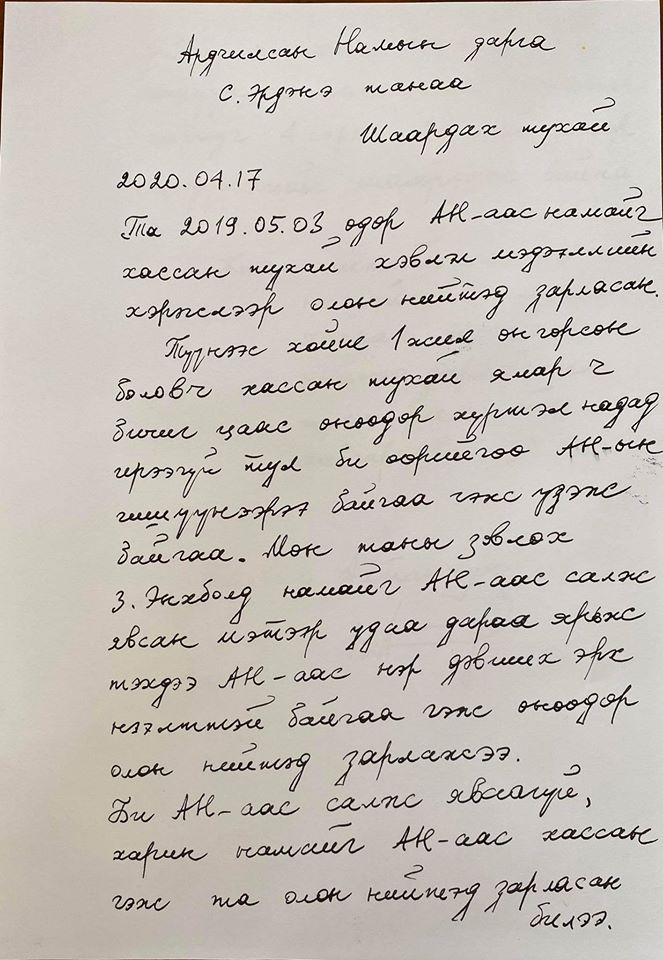 Ардчилсан Намын дарга
С. Эрдэнэ танаа
Шаардах тухай
2020.04.17
Та 2019.05.03 одор АН-аас намайг
хассан тухай хэвлэл мэдээллийн
хэрэгслээр олон нийтэд зарласан.
Түүнээс хойш 1 жил онгорсон
боловч хассан тухай ямар ч
бичиг цаас оноодор хүртэл надад
ирээгүй тул би оорийгоо АН-ын
гишүүнээрээ байгаа гэж үзэж
байгаа. Мон таны зовлох
З. Энхболд намайг АН-аас салж
явсан мэтээр удаа дараа ярьж
тэхдээ АН-аас нэр дэвших эрх
нээлттэй байгаа гэж оноодор
олон нийтэд зарлажээ.
Би АН-аас салж яваагүй,
харин намайг АН-аас хассан
гэж та олон нийтэд зарласан
билээ.